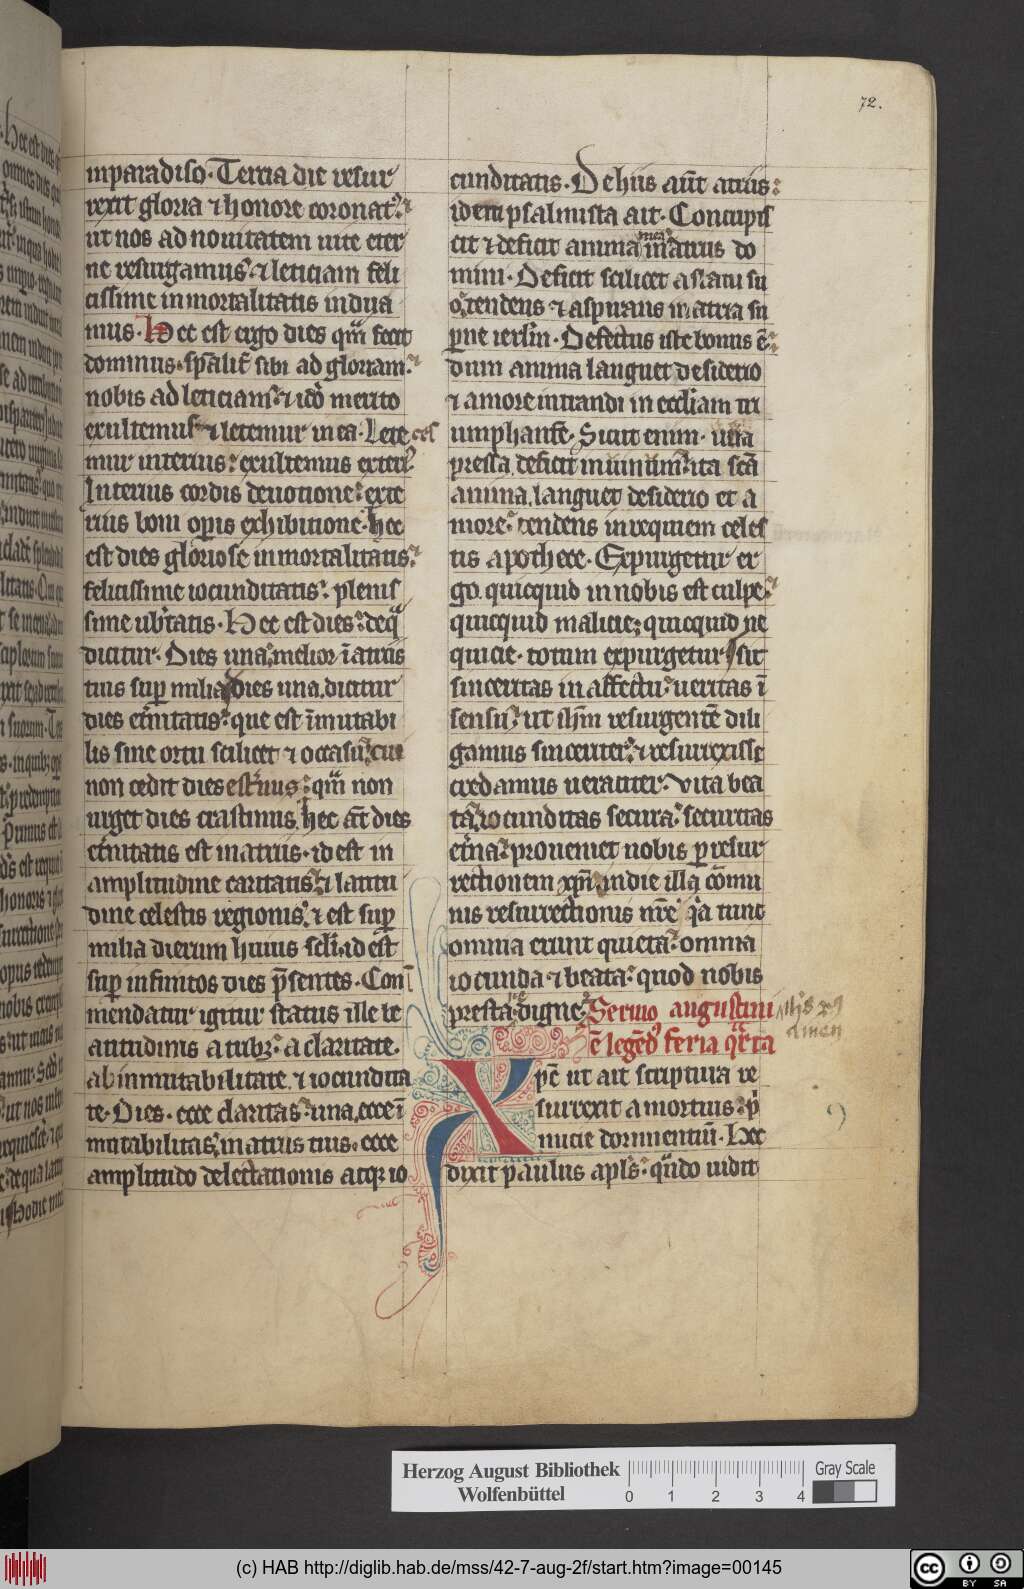 72.
inparadiso. Tertia die resur
rexit gloria ⁊ honore coronat᷒.
ut nos ad nouitatem uite eter
ne resurgamus. ⁊ leticiam feli
cissime inmortalitatis indua
mus. Hec est ergo dies qm̅ fecit
dominus. sp̅alit̅ sibi ad gloriam.
nobis ad leticiam. ⁊ ico̅ merito
exultemus ⁊ letemur in ea. Lete
mur interius. exultemus exteri᷒.
Interius cordis deuotione. exte
rius boni op̅is exhibitione. hec
est dies gloriose inmortalitatis.
felicissime iocunditatis. plenis
sime ub̅tatis. Hec est dies. de q̅
dicitur. Dies una. melior i̅ atriis
tuis sup̅ milia. Dies una. dicitur
dies et̅nitatis. que est i̅mutabi
lis sine ortu scilicet ⁊ occasu. cui
non cedit dies est̅nus. qm̅ non
urget dies crastinus. hec at̅ dies
et̅nitatis est in atriis. id est in
amplitudine caritatis. ⁊ latitu
dine celestis regionis. ⁊ est sup̅
milia dierum huius scl̅i. id est
sup̅ infinitos dies p̅sentes. Com
mendatur igitur status ille be
atitudinis a tribꝫ. a claritate.
ab inmutabilitate. ⁊ iocundita
te. Dies. ecce claritas. una. ecce i̅
mutabilitas. in atriis tuis. ecce
amplitudo delectationis atqꝫ io
cunditatis. De hiis aut̅ atriis.
idem psalmista ait. Concupis
cit ⁊ deficit anima mea in atrius do
mini. Deficit scilicet a statu su
o. tendens ⁊ aspirans in atria su
p̅ne ierl̅m. Defectus iste bonus e̅.
dum anima languet desiderio
⁊ amore intrandi in eccl̅iam tri
umphante̅. Sicut enim. uua
pressa. deficit in uinum. ita sc̅a
anima. languet desiderio et a
more. tendens in requiem celes
tis apothece. Expurgetur er
go. quicquid in nobis est culpe.
quicquid malicie. quicquid ne
quicie. totum expurgetur. sit
sinceritas in affectu. ueritas i̅
sensu. ut ih̅m resurgente̅ dili
gamus sinceriter. ⁊ resurrexisse
credamus ueraciter. Vita bea
ta. iocunditas secura. securitas
et̅na. proueniet nobis p̅ resur
rectionem xp̅i. in die illa co̅mu
nis resurrectionis nr̅e. q̅a tunc
omnia erunt quieta. omnia
iocunda ⁊ beata. quod nobis
prestare digne. Sermo augustini
amen
e̅ lege̅d᷒ feria q̅rta
Xpe̅ ut ait scriptura re
surrexit a mortuis. p̅
micie dormientiu̅. Hec
dixit paulus apl̅s. qn̅do uidit
Herzog August Bibliothek
Wolfenbüttel
0 1 2 3 4
Gray Scale
(c) HAB http://diglib.hab.de/mss/42-7-aug-2f/start.htm?image=00145
cc BY SA